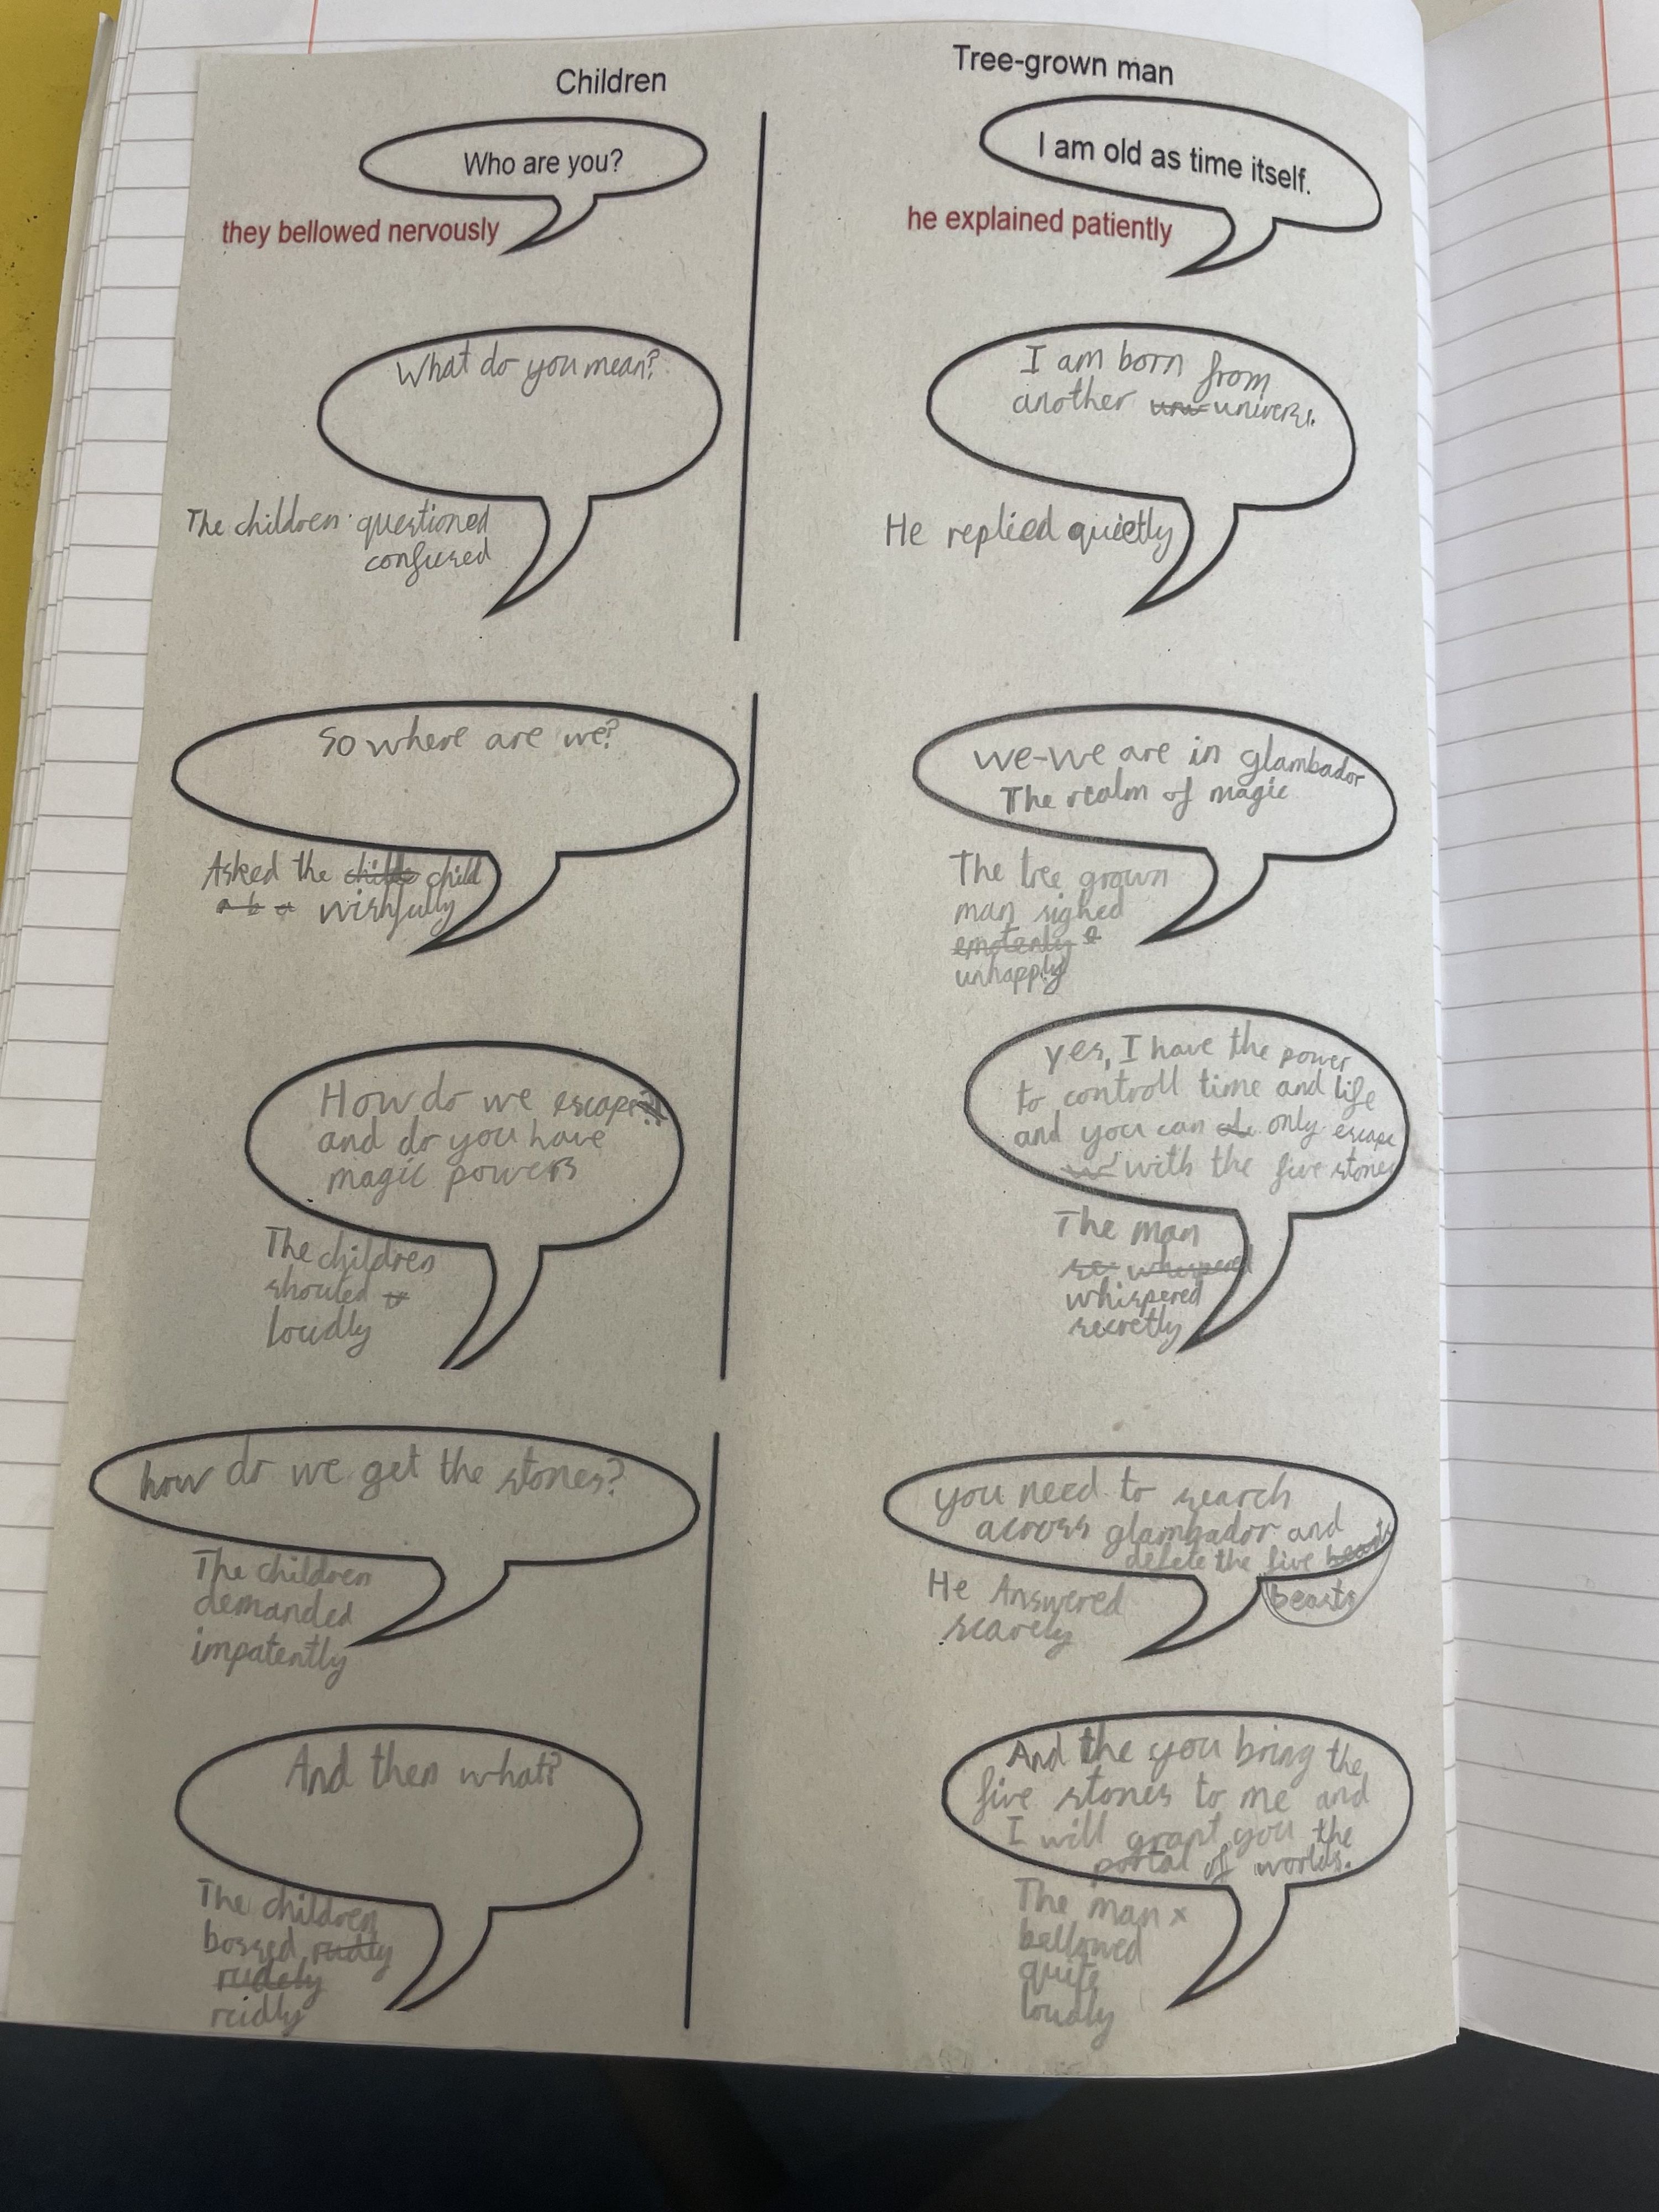 Children
Tree-grown man
Who are you?
they bellowed nervously
I am old as time itself.
he explained patiently
What do you mean?
The children questioned
confused
I am born from
another univers.
He replied quietly
So where are we?
Asked the child
wishfully
we-we are in glambador
The realm of magic
The tree grown
man sighed
unhappily
How do we escape
and do you have
magic powers
The children
shouted
loudly
yes, I have the power
to controll time and life
and you can only escape
with the five stones
The man
whispered
secretly
how do we get the stones?
The children
demanded
impatently
you need to search
across glambador and
defete the five
beasts
He Answered
scarely
And then what?
The children
bossed
And the you bring the
five stones to me and
I will grant you the
portal of worlds.
The man
bellowed
quite
loudly